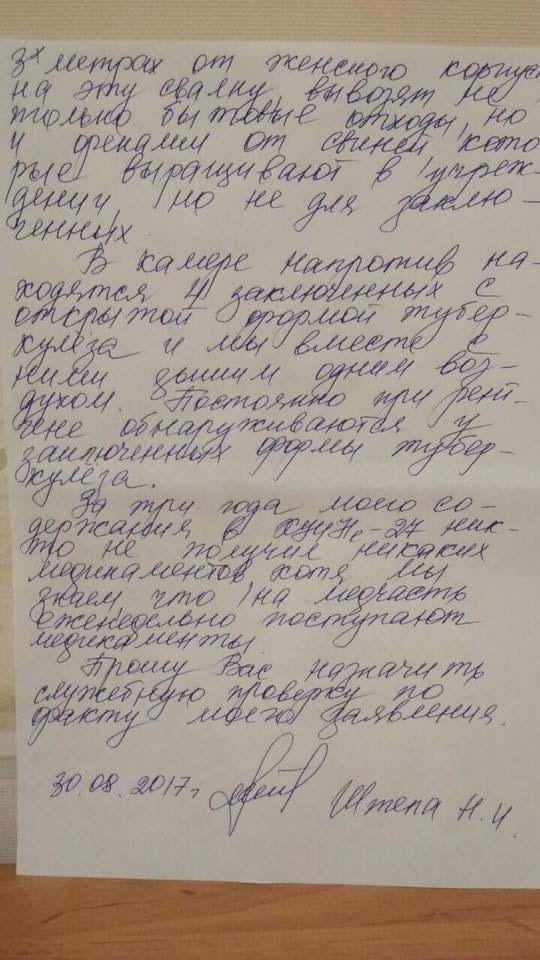 3х метрах от женского корпуса
на эту свалку вывозят не
только бытовые отходы, но
и фекалии от свиней кото
рые выращивают в учреж-
дении но не для заклю-
ченных.
В камере напротив на-
ходятся 4 заключенных с
открытой формой тубер-
кулёза и мы вместе с
ними дышим одним воз-
духом. Постоянно при рент-
гене обнаруживаются у
заключенных формы тубер-
кулёза.
За три года моего со-
держания в ХУИН-27 ник-
то не получил никаких
медикаментов хотя мы
знаем, что на медчасть
еженедельно поступают
медикаменты.
Прошу Вас назначить
служебную проверку по
факту моего заявления.
30.08.2017г Штепа Н.И.